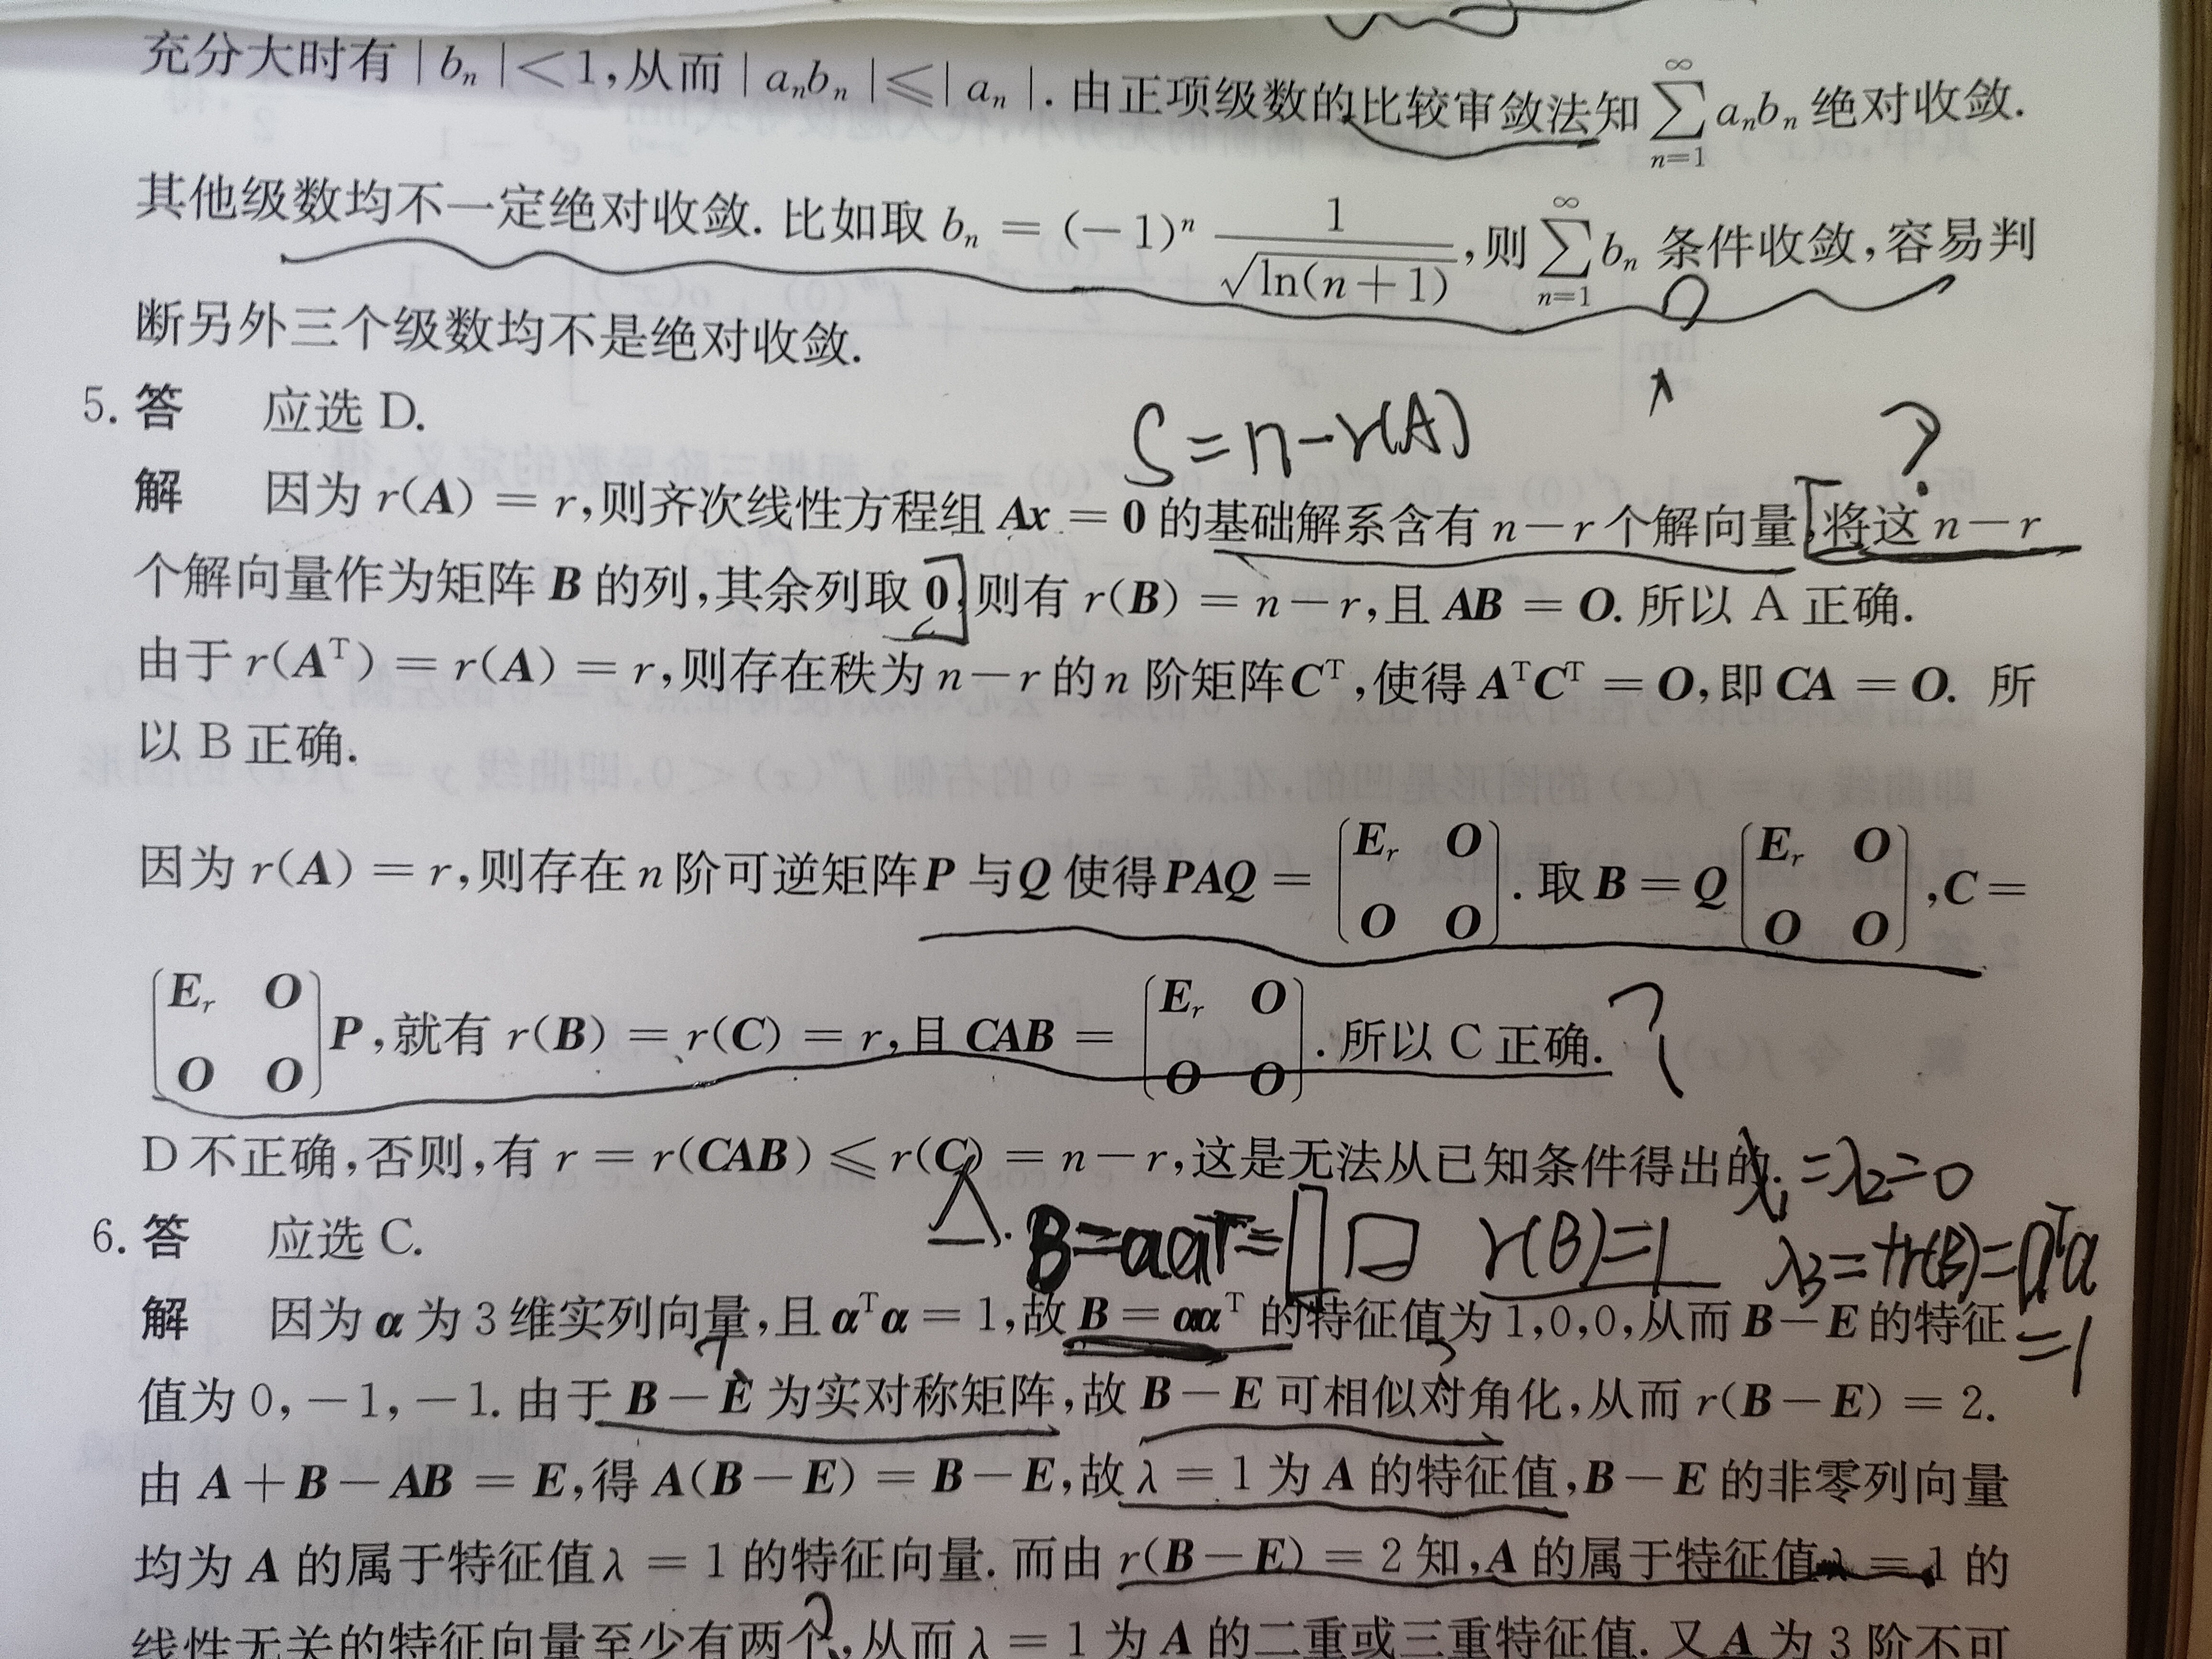 充分大时有 | bₙ | < 1,从而 | aₙbₙ | ⩽ | aₙ |. 由正项级数的比较审敛法知 ∑_{n=1}^{∞} aₙbₙ 绝对收敛.
其他级数均不一定绝对收敛. 比如取 bₙ = (−1)ⁿ 1/√ln(n+1), 则 ∑_{n=1}^{∞} bₙ 条件收敛,容易判
断另外三个级数均不是绝对收敛.
5. 答 应选 D.
S = n − r(A)
?
解 因为 r(A) = r,则齐次线性方程组 Ax = 0 的基础解系含有 n−r 个解向量,将这 n−r
个解向量作为矩阵 B 的列,其余列取 0,则有 r(B) = n−r,且 AB = O. 所以 A 正确.
由于 r(Aᵀ) = r(A) = r,则存在秩为 n−r 的 n 阶矩阵 Cᵀ,使得 AᵀCᵀ = O,即 CA = O. 所
以 B 正确.
因为 r(A) = r,则存在 n 阶可逆矩阵 P 与 Q 使得 PAQ = (Eᵣ O; O O). 取 B = Q (Eᵣ O; O O), C =
(Eᵣ O; O O) P,就有 r(B) = r(C) = r,且 CAB = (Eᵣ O; O O). 所以 C 正确. ?
D 不正确,否则,有 r = r(CAB) ⩽ r(C) = n−r,这是无法从已知条件得出的.
λ₁ = λ₂ = 0
6. 答 应选 C.
B = ααᵀ = r(B) = 1 λ₃ = tr(B) = αᵀα
= 1
解 因为 α 为 3 维实列向量,且 αᵀα = 1,故 B = ααᵀ 的特征值为 1,0,0,从而 B−E 的特征
值为 0,−1,−1. 由于 B−E 为实对称矩阵,故 B−E 可相似对角化,从而 r(B−E) = 2.
由 A+B−AB = E,得 A(B−E) = B−E,故 λ = 1 为 A 的特征值,B−E 的非零列向量
均为 A 的属于特征值 λ = 1 的特征向量. 而由 r(B−E) = 2 知,A 的属于特征值 λ = 1 的
线性无关的特征向量至少有两个,从而 λ = 1 为 A 的二重或三重特征值. 又 A 为 3 阶不可